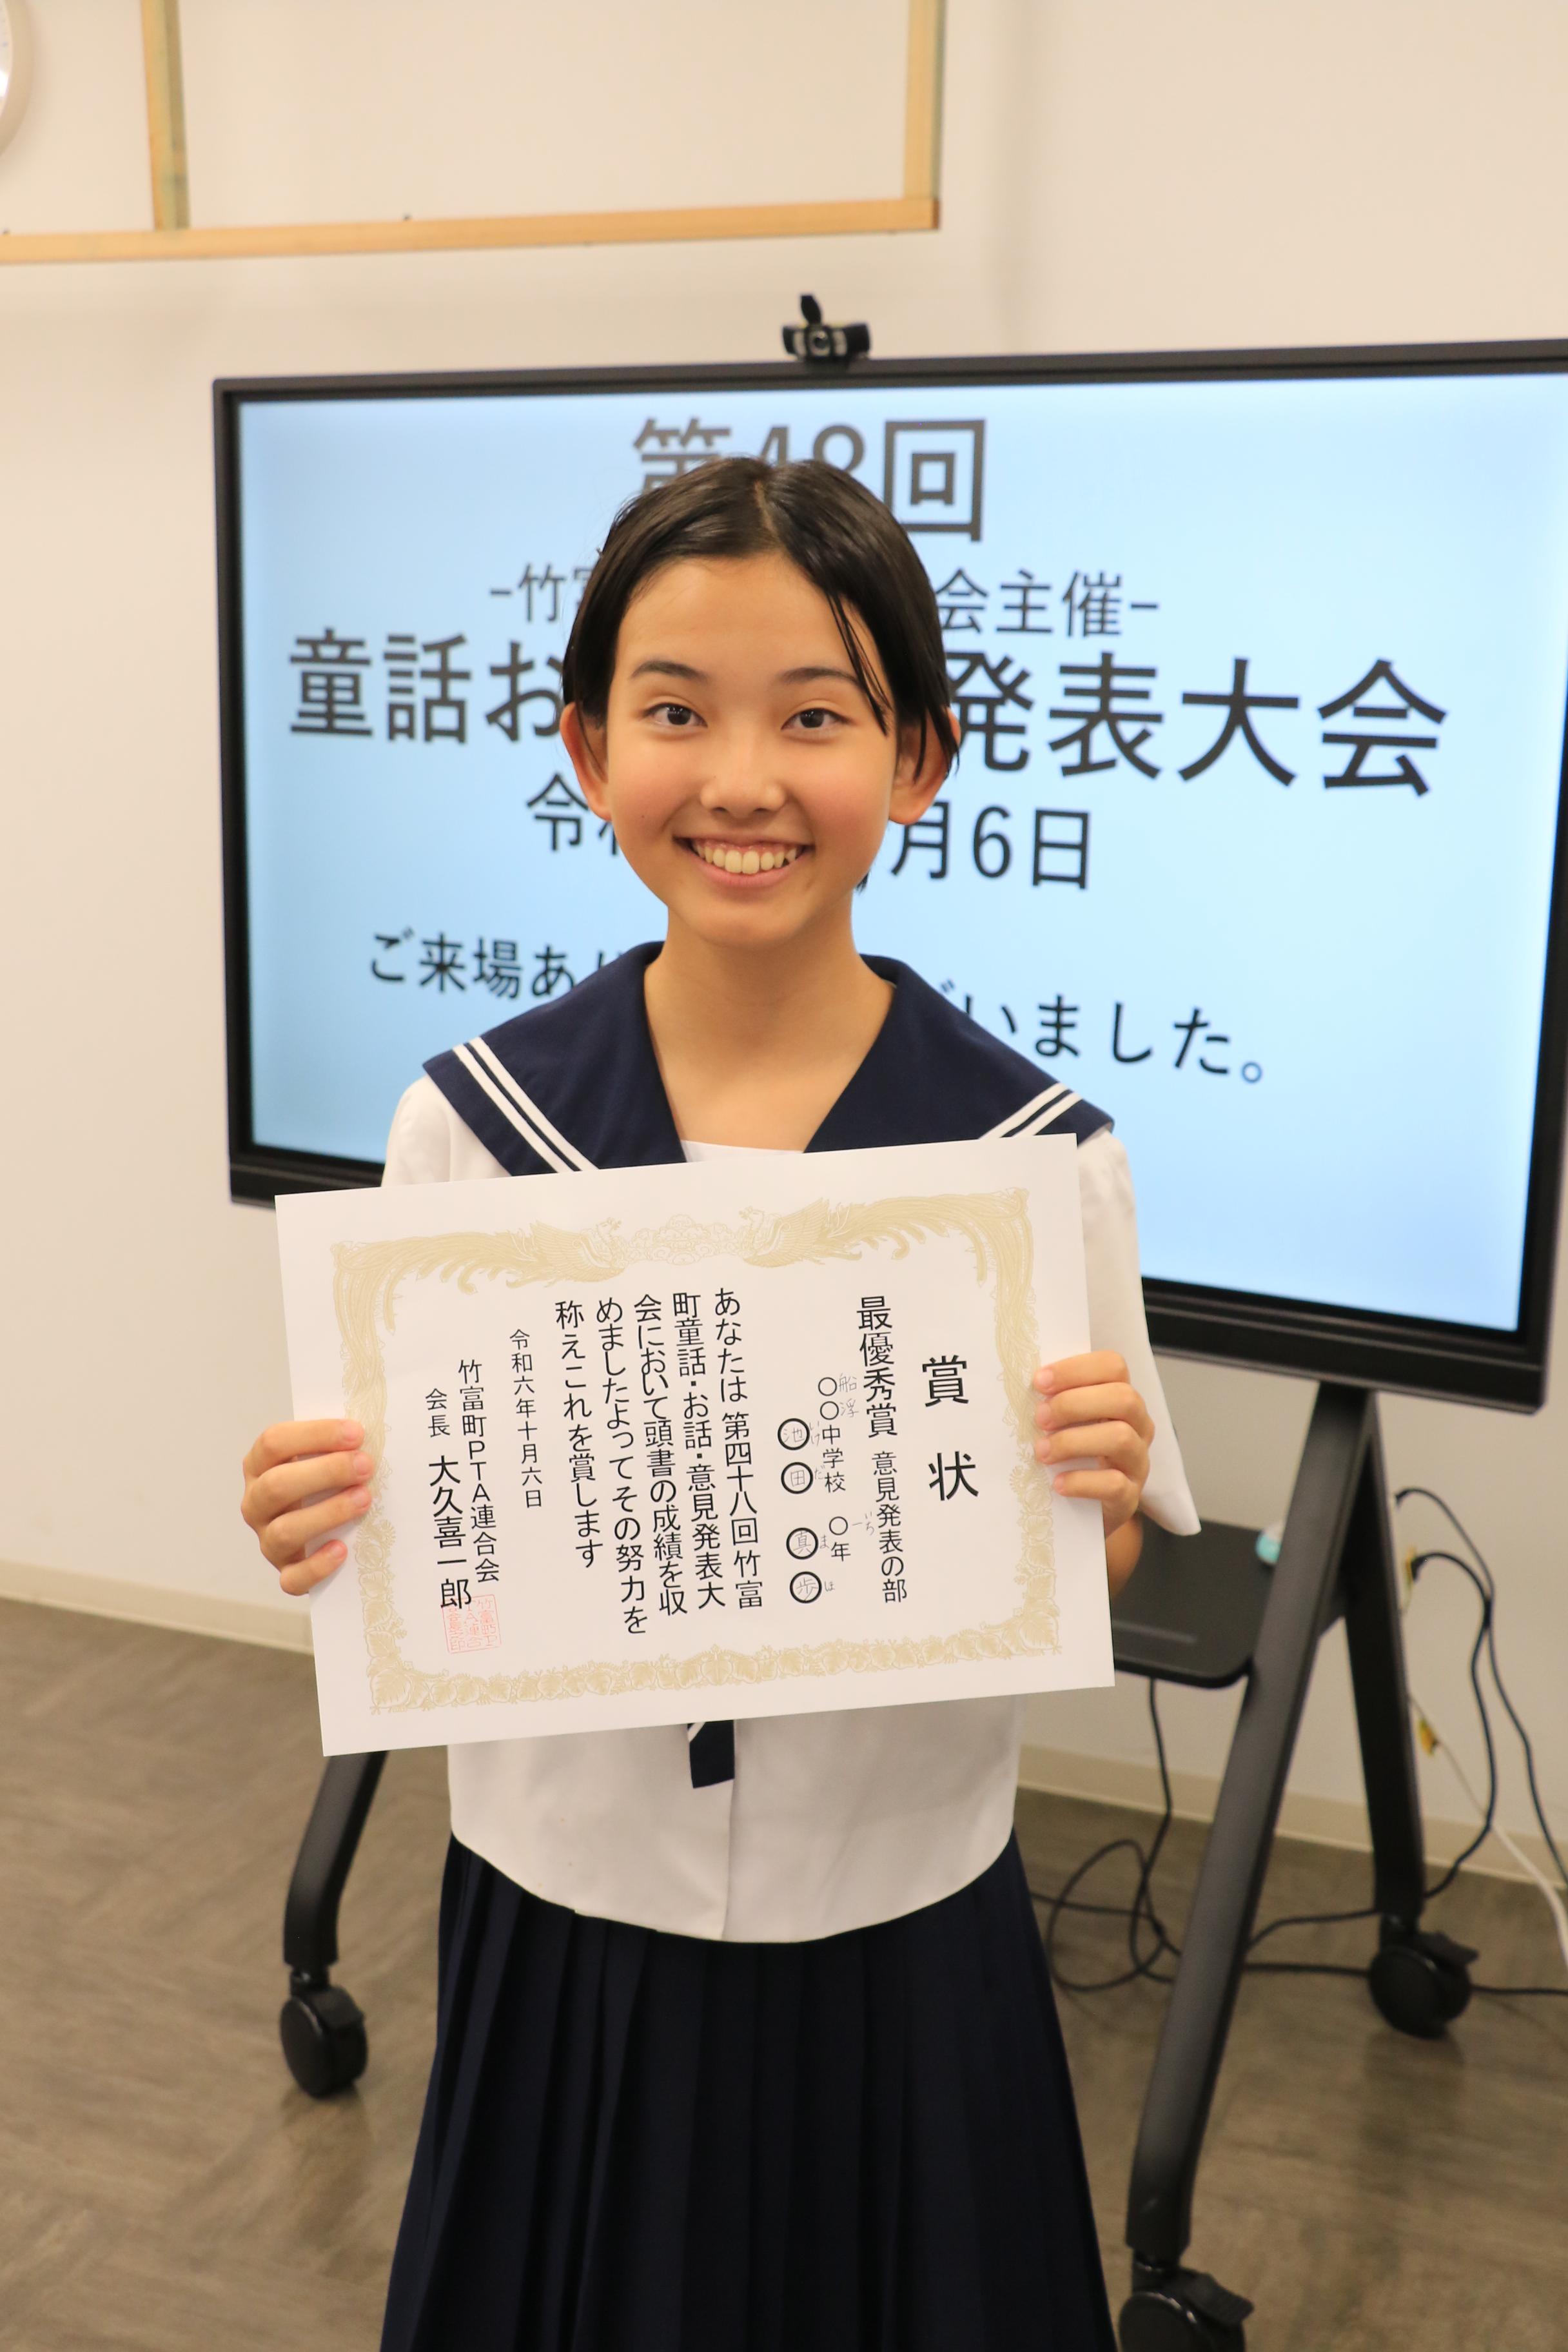 第48回
-竹富 会主催-
童話お 発表大会
令和 月6日
ご来場あり ざいました。
賞状
最優秀賞 意見発表の部
船浮
〇〇中学校 〇年
いち
一
いけ だ ま ほ
池田 真歩
あなたは 第四十八回 竹富
町童話・お話・意見発表大
会において頭書の成績を収
めましたよってその努力を
称えこれを賞します
令和六年十月六日
竹富町PTA連合会
会長 大久喜一郎